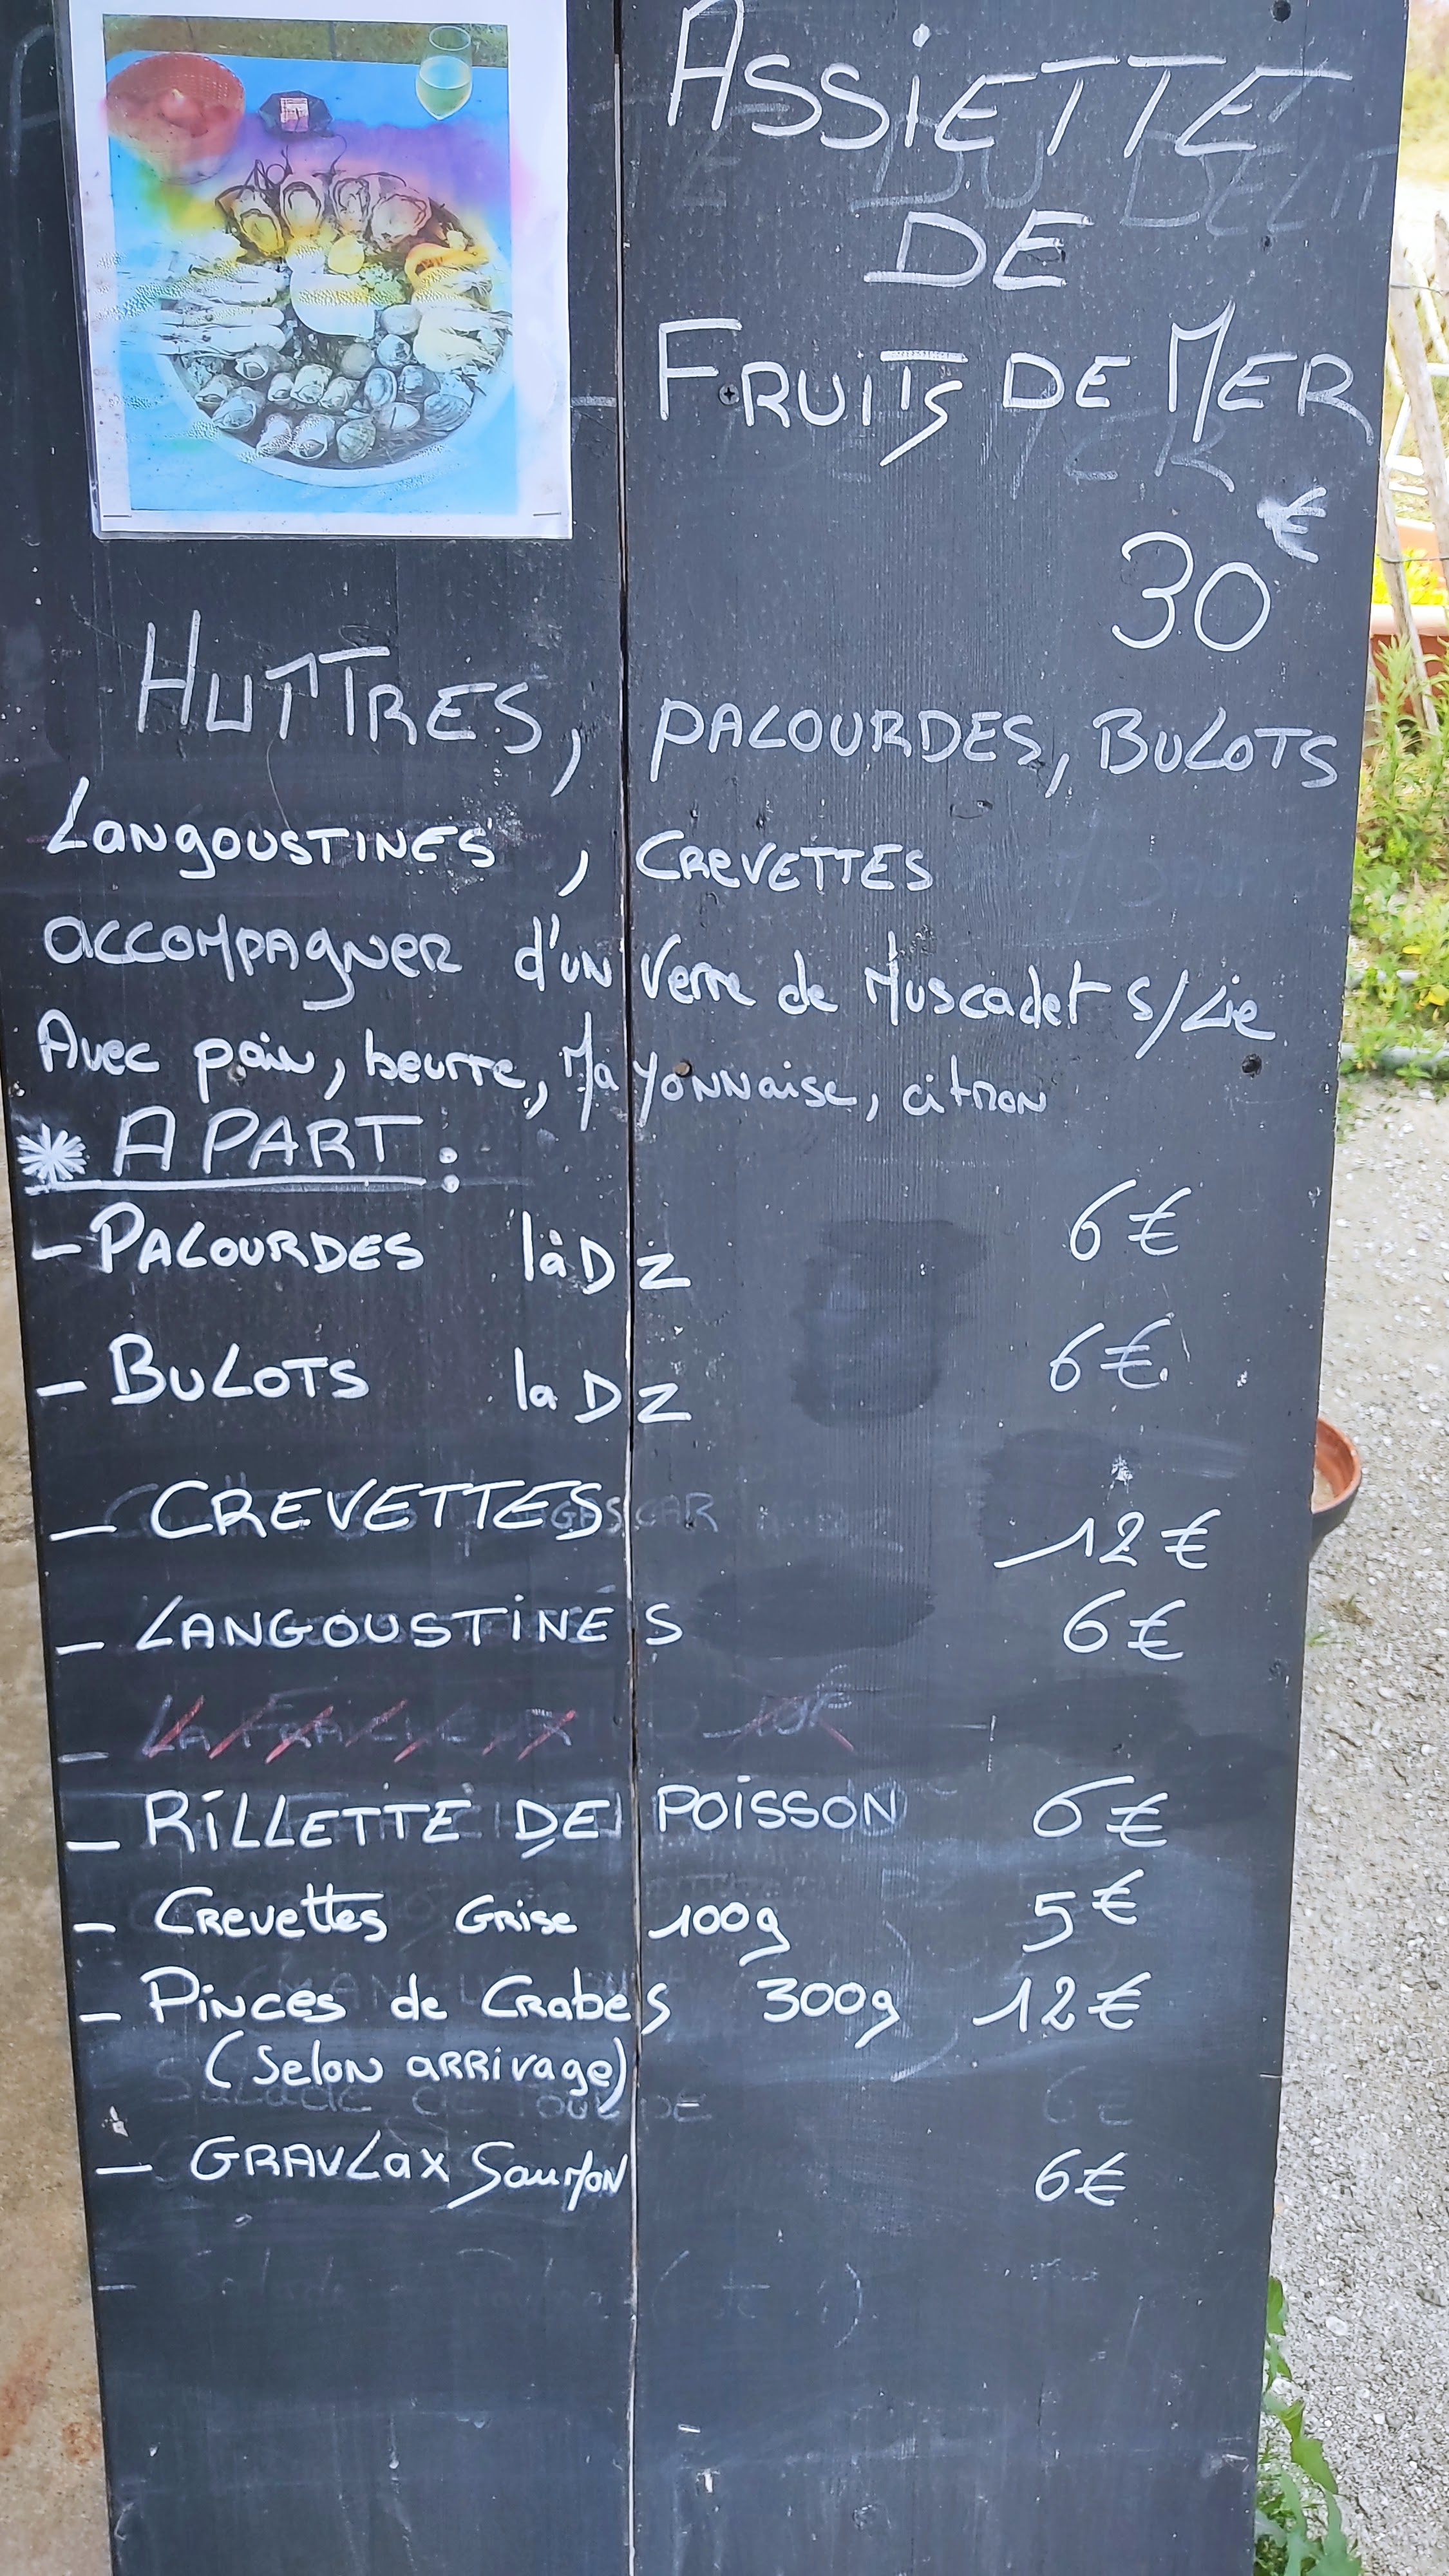 ASSIETTE
DE
FRUITS DE MER
30€
HUÎTRES, PALOURDES, BULOTS
LANGOUSTINES, CREVETTES
accompagner d'un verre de Muscadet s/Lie
Avec pain, beurre, Mayonnaise, citron
* A PART :
- PALOURDES la DZ 6€
- BULOTS la DZ 6€
- CREVETTES 12€
- LANGOUSTINES 6€
- RILLETTE DE POISSON 6€
- Crevettes Grise 100g 5€
- Pinces de Crabes 300g 12€
(Selon arrivage)
- GRAVLax Saumon 6€